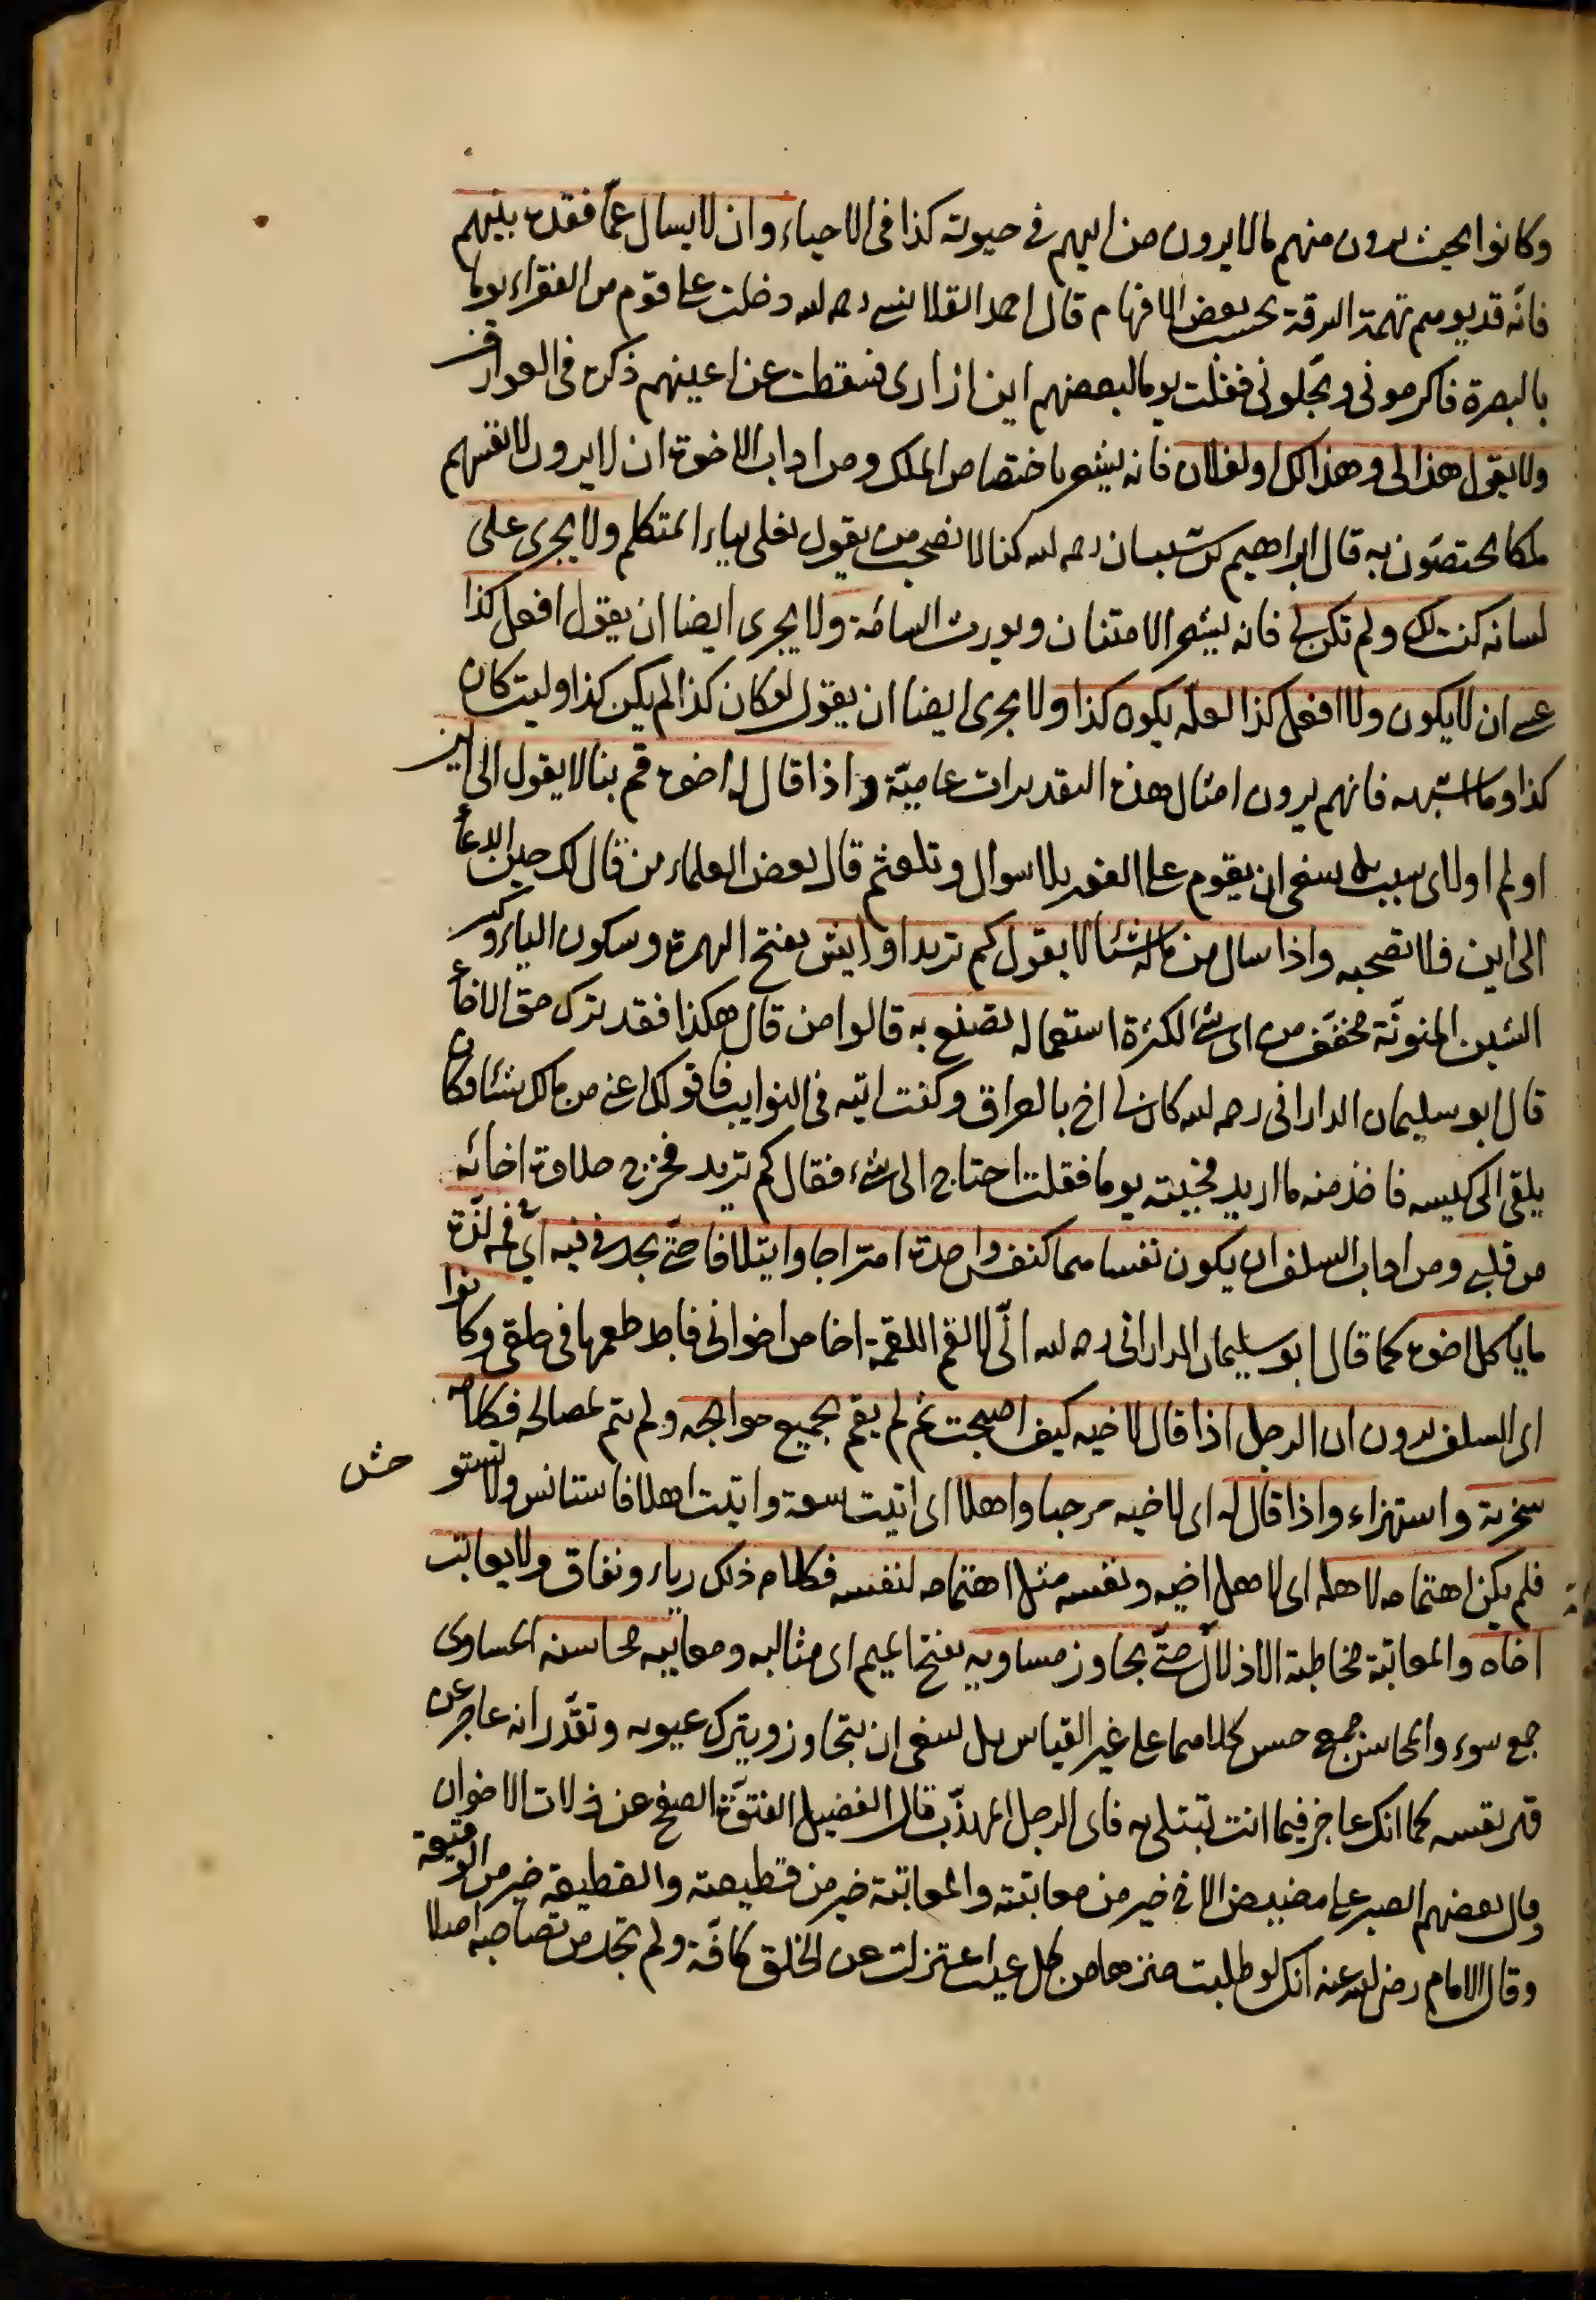 وكانوا بحيث يرون منهم ما لا يرون من ابيهم في حيوته كذا في الاحياء وان لا يسال عما فقده بينهم
فانه قد يوهم تهمة السرقة بحسب بعض الافهام قال احمد القلانسي رحمه الله دخلت على قوم من الفقراء يوما
بالبصرة فاكرموني وبجلوني فقلت يوما لبعضهم اين ازارى فسقطت عن اعينهم ذكره في العوارف
ولا يقول هذا لى وهذا لك او لفلان فانه يشعر باختصاص الملك ومن اداب الاخوة ان لا يرون لانفسهم
ملكا يختصون به قال ابراهيم بن شيبان رحمه الله كنا لا نصحب من يقول نعلى بياء المتكلم ولا يجرى على
لسانه كنت لك ولم تكن لى فانه يشعر الامتنان ويورث السامة ولا يجرى ايضا ان يقول افعل كذا
عسى ان لا يكون ولا افعل كذا لعله يكون كذا ولا يجرى ايضا ان يقول لو كان كذا لم يكن كذا وليت كان
كذا وما اشبهه فانهم يرون امثال هذه التقديرات عامية واذا قال له اخوه قم بنا لا يقول الى اين
او لم او لاى سبب بل ينبغى ان يقوم على الفور بلا سوال وتلعثم قال بعض العلماء من قال لك حين الدعاء
الى اين فلا تصحبه واذا سال من ماله شئا لا يقول كم تريد او ايش بفتح الهمزة وسكون الياء وكسر
الشين المنونة مخفف من اى شئ لكثرة استعماله تصنع به قالوا من قال هكذا فقد ترك حق الاخاء
قال ابو سليمان الدارانى رحمه الله كان لى اخ بالعراق وكنت اتيه فى النوايب فاقول اعطنى من مالك شئا وكان
يلقى الى كيسه فاخذ منه ما اريد فجيته يوما فقلت احتاج الى شئ فقال كم تريد فخرج حلاوة اخائه
من قلبى ومن اداب السلف ان يكون نفساهما كنفس واحدة امتزاجا وايتلافا حتى يجد فى فيه اى فمه لذة
ما ياكل اخوه كما قال ابو سليمان الدارانى رحمه الله انى لالقم اللقمة اخا من اخوانى فاجد طعمها فى حلقى وكانوا
اى السلف يرون ان الرجل اذا قال لاخيه كيف اصبحت ثم لم يقم بجميع حوائجه ولم يتم لمصالحه فكلامه
سخرية واستهزاء واذا قال له اى لاخيه مرحبا واهلا اى اتيت سعة واتيت اهلا فاستانس ولا تستوحش
فلم يكن اهتمامه لاهله اى لاهل اخيه ونفسه مثل اهتمامه لنفسه فكلامه ذلك رياء ونفاق ولا يعاتب
اخاه والمعاتبة مخاطبة الاذلال حتى يجاوز مساويه بفتح الميم اى مثالبه ومعايبه محاسنه المساوى
جمع سوء والمحاسن جمع حسن كلاهما على غير القياس بل ينبغى ان يتجاوز ويترك عيوبه وتقدر انه عاجز عن
قهر نفسه كما انك عاجز فيما انت تبتلى به فاى الرجل المهذب قال الفضيل الفتوة الصفح عن زلات الاخوان
وقال بعضهم الصبر على مضيض الاخ خير من معاتبته والمعاتبة خير من قطيعته والقطيعة خير من الوقيعة
وقال الامام رضى الله عنه انك لو طلبت منزها من كل عيب اعتزلت عن الخلق كافة ولم تجد من تصاحبه اصلا